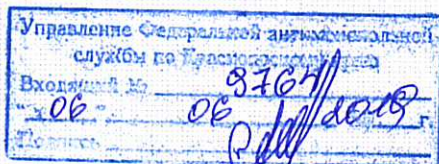 Управление Федеральной антимонопольной
службы по
Входящий № 9764
"06" 06 2019 г.
Подпись